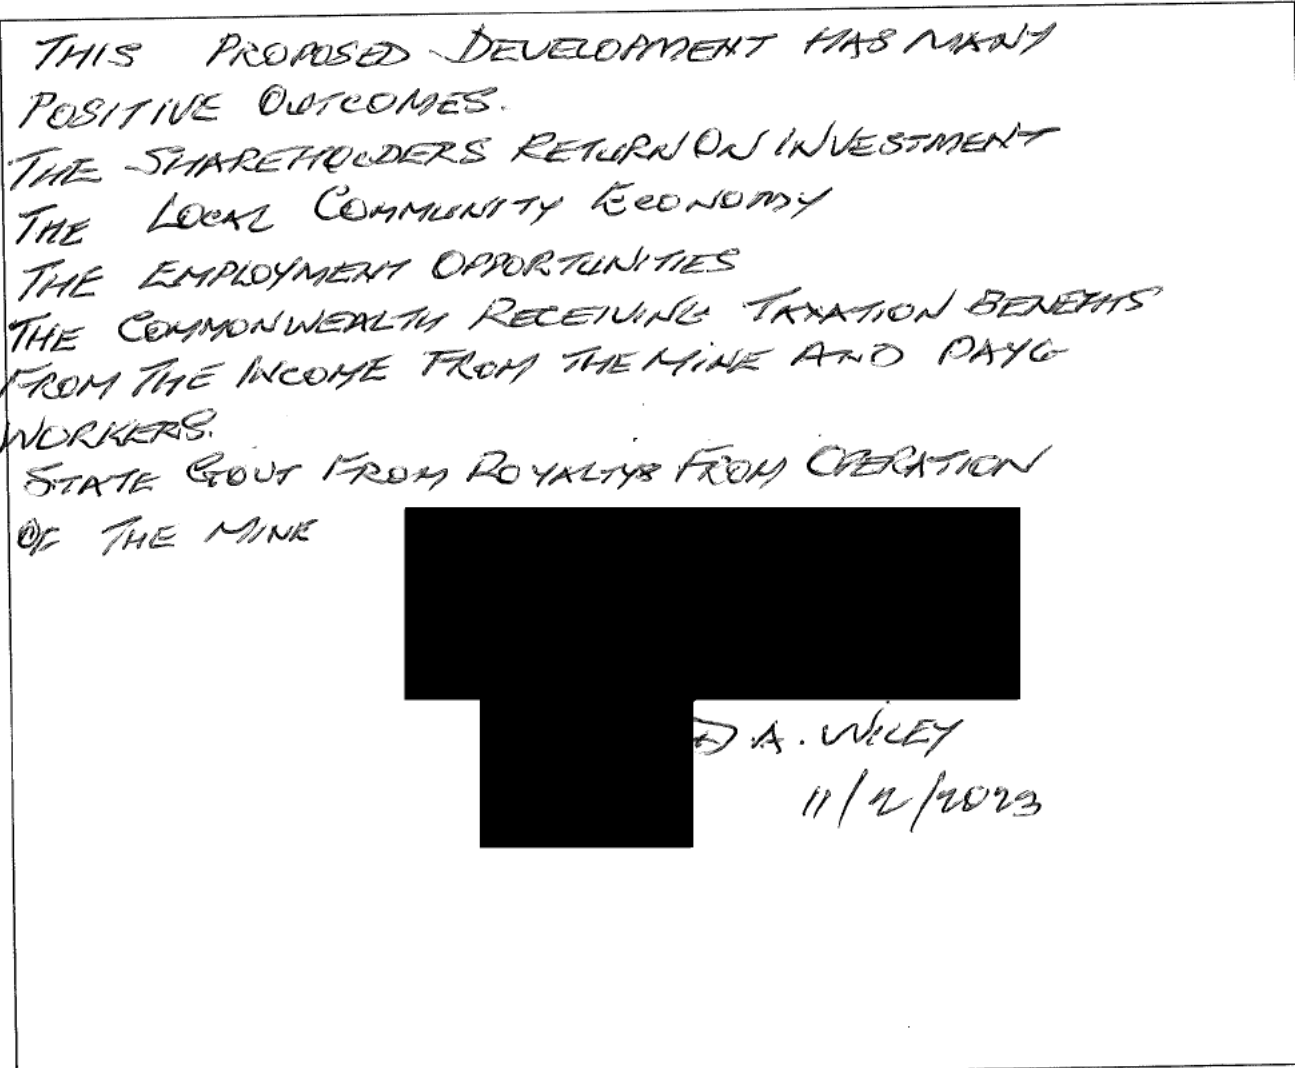 THIS PROPOSED DEVELOPMENT HAS MANY
POSITIVE OUTCOMES.
THE SHAREHOLDERS RETURN ON INVESTMENT
THE LOCAL COMMUNITY ECONOMY
THE EMPLOYMENT OPPORTUNITIES
THE COMMONWEALTH RECEIVING TAXATION BENEFITS
FROM THE INCOME FROM THE MINE AND PAYG
WORKERS.
STATE GOVT FROM ROYALTYS FROM OPERATION
OF THE MINE
D.A. WILEY
11/2/2023